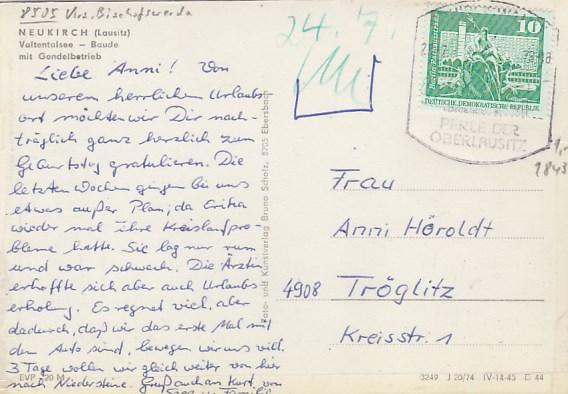 8505 Krs. Bischofswerda
NEUKIRCH (Lausitz)
Valtentalsee — Baude
mit Gondelbetrieb
Liebe Anni! Von
unserem herrlichen Urlaubs-
ort möchten wir Dir nach-
träglich ganz herzlich zum
Geburtstag gratulieren. Die
letzten Wochen gingen bei uns
etwas außer Plan, da Erika
wieder mal ihre Kreislaufpro-
bleme hatte. Sie lag nur rum
und war schwach. Die Ärztin
erhoffte sich aber auch Urlaubs-
erholung. Es regnet viel, aber
dadurch, daß wir das erste Mal mit
dem Auto sind, bewegen wir uns viel.
3 Tage wollen wir gleich weiter von hier
nach Niedersteine. Gruß auch an Kurt, von
Familie
EVP 20 M
Foto- und Kunstverlag Bruno Scholz, 8705 Ebersbach
24. 7.
10
DEUTSCHE DEMOKRATISCHE REPUBLIK
PERLE DER
OBERLAUSITZ
1,-
1843
Frau
Anni Höroldt
4908 Tröglitz
Kreisstr. 1
3249 J 20/74 IV-14-45 D 44